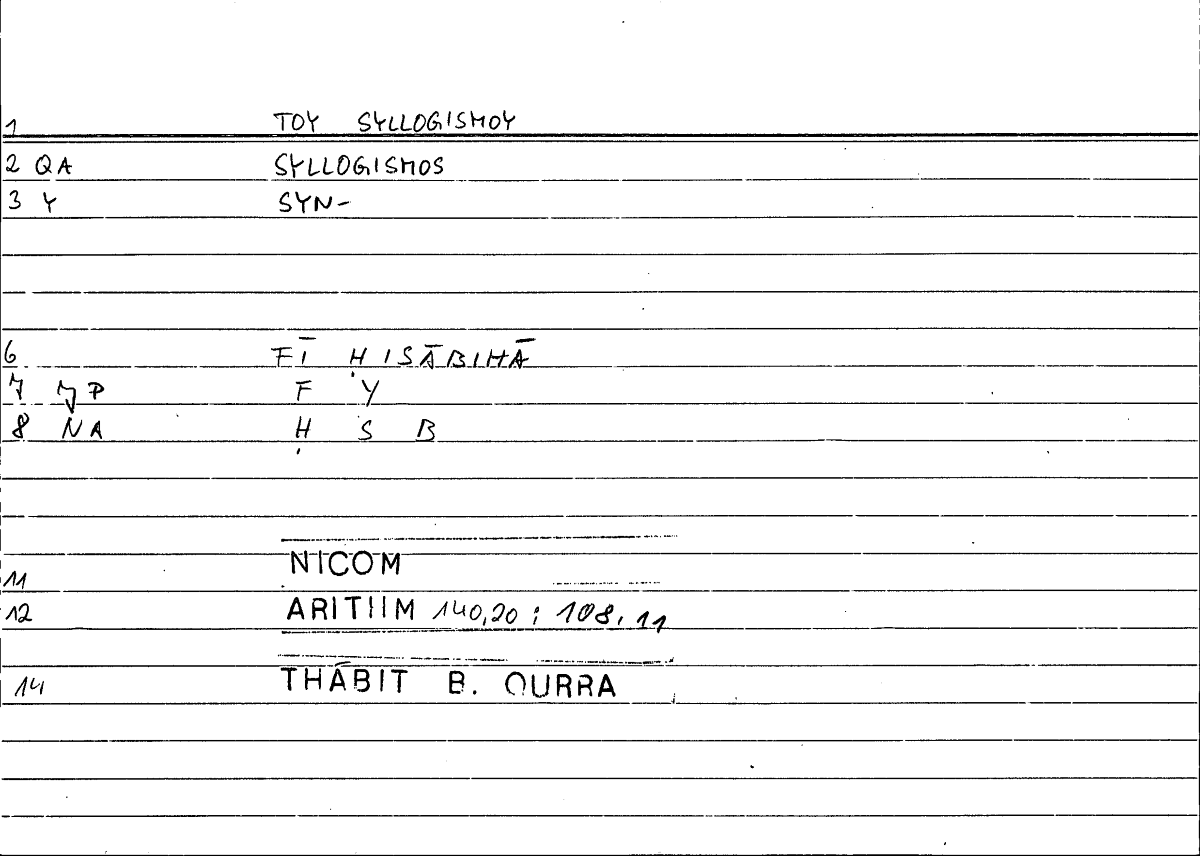 1 TOY SYLLOGISMOY
2 QA SYLLOGISMOS
3 Y SYN-
6 FĪ ḤISĀBIHĀ
7 F Y
8 NA Ḥ S B
11 NICOM
12 ARITHM 140,20 ; 108,11
14 THĀBIT B. QURRA